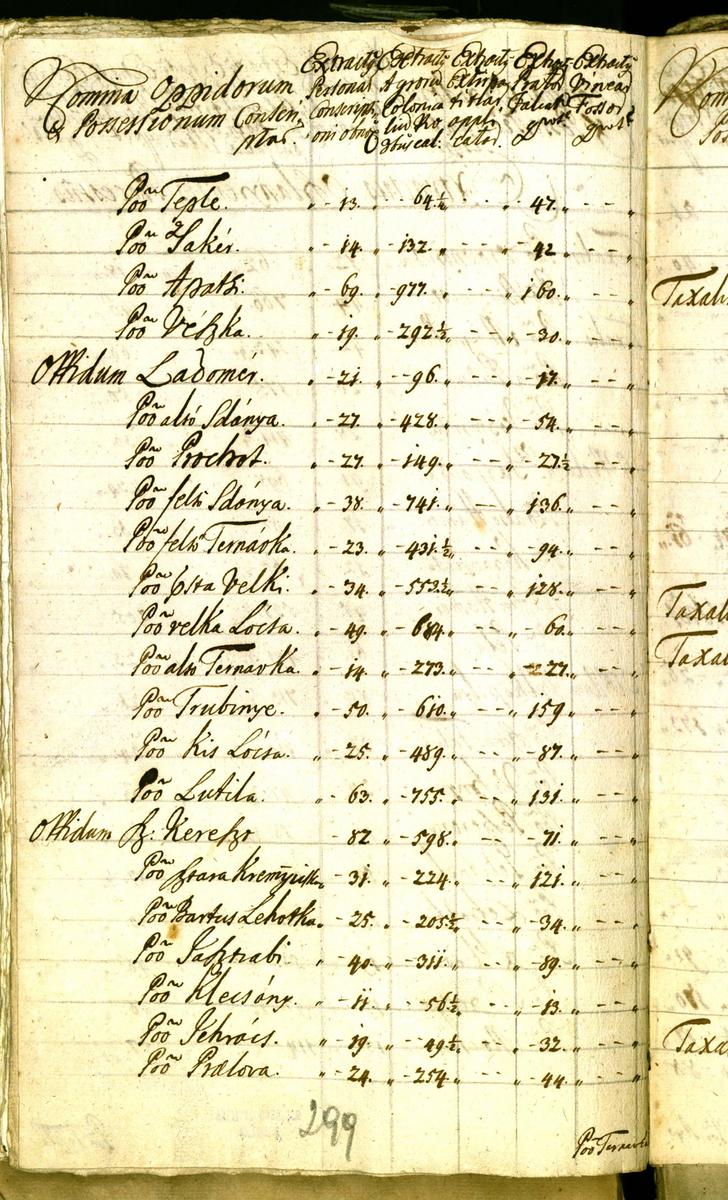 Nomina Oppidorum & Possessionum Conscriptar.
Extractus Personar Conscriptioni obnox
Extractus Agrorum Colonica
Extractus Extirpatitias applicator.
Extractus Prator Falcat
Extractus Vinear Fossor
Poo Teple. 13. 64½ 47.
Poo Sakér. 14. 132. 42
Poo Apathi. 69. 977. 160.
Poo Vészka. 19. 292½ 30.
Offidum Ladomér. 21. 96. 17.
Poo alsó Sdánya. 27. 428. 54.
Poo Prochot. 27. 149. 27½
Poo felsö Sdánya. 38. 741. 136.
Poo felsö Ternávka. 23. 431½ 94.
Poo Osta Velki. 34. 553½ 128.
Poo velka Lócsa. 49. 684. 60.
Poo alsó Ternavka. 14. 273. 227.
Poo Trubinye. 50. 610. 159
Poo Kis Lócsa. 25. 489. 87.
Poo Lutila. 63. 755. 131.
Offidum Sz: Kereszt 82 598. 71.
Poo Sztara 31. 224. 121.
Poo Bartus Lehotka. 25. 205½ 34.
Poo Jasztrabi. 40. 311. 89.
Poo Klecsány. 11. 56½ 13.
Poo Jehrács. 19. 49½ 32.
Poo Prælova. 24. 254. 44.
299
Poo
Taxal
Taxal
Taxal
Taxa